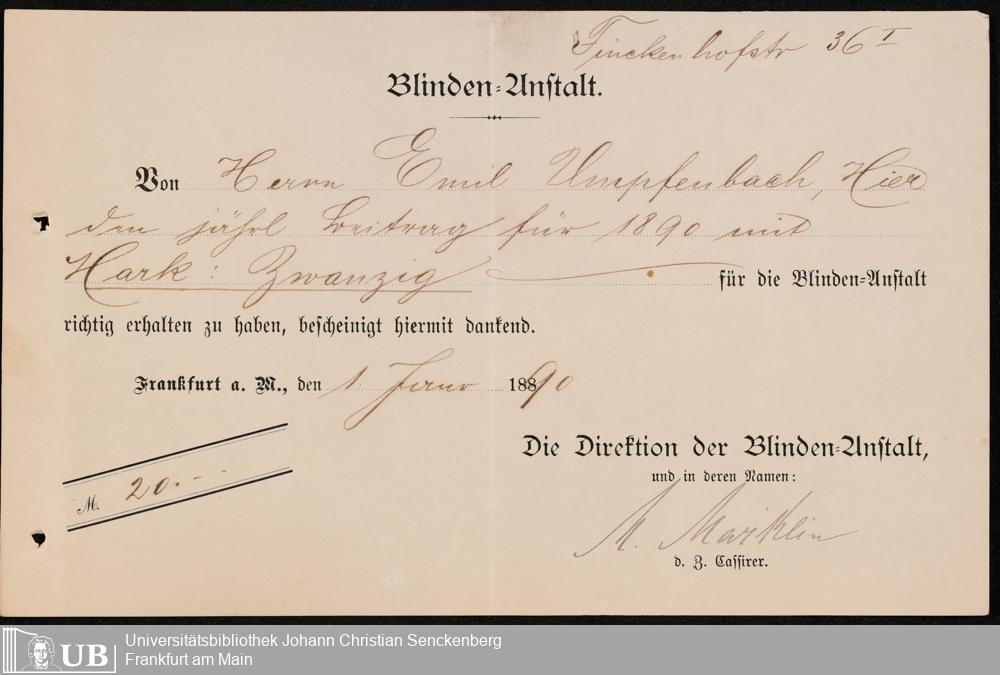 Finckenhofstr 36 I
Blinden-Anstalt.
Von Herrn Emil Umpfenbach, Hier
den jährl Beitrag für 1890 mit
Mark: Zwanzig für die Blinden-Anstalt
richtig erhalten zu haben, bescheinigt hiermit dankend.
Frankfurt a. M., den 1. Janr 18890
M. 20.-
Die Direktion der Blinden-Anstalt,
und in deren Namen:
M. Mariklin
d. Z. Cassirer.
UB
Universitätsbibliothek Johann Christian Senckenberg
Frankfurt am Main